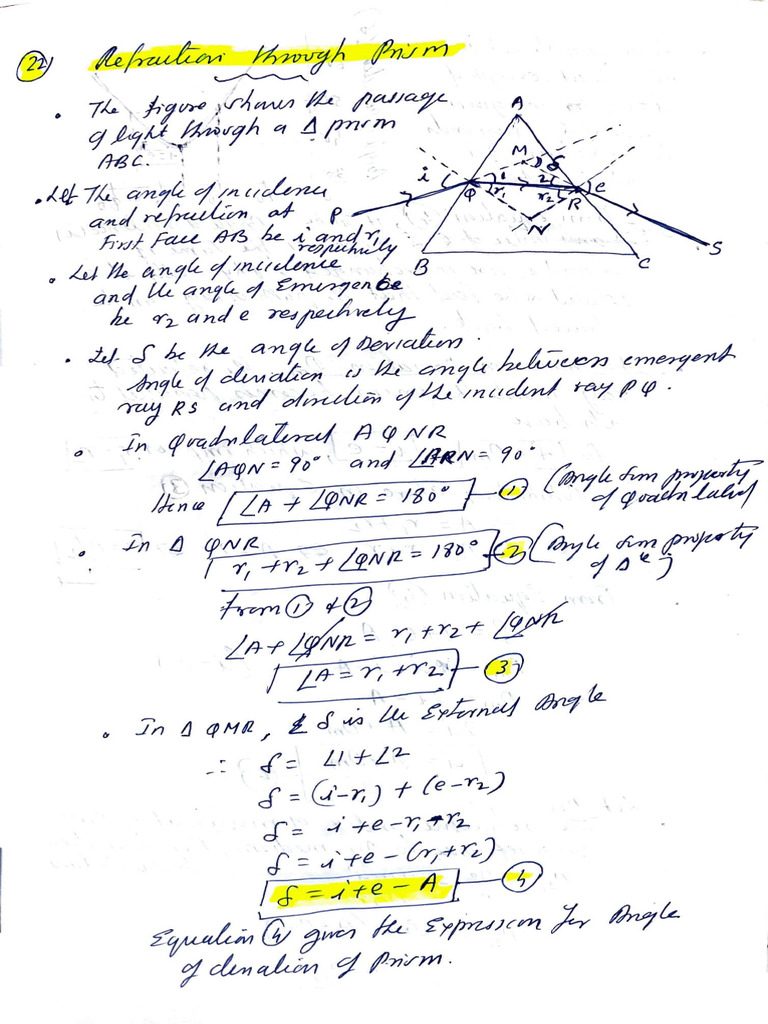 22) Refraction through Prism
• The figure, shows the passage
of light through a Δ prism
ABC.
• Let The angle of incidence
and refraction at
First Face AB be i and r₁
respectively
• Let the angle of incidence
and the angle of Emergence
be r₂ and e respectively
A
M
δ
i
Q
1
2
r₁
r₂
R
e
P
N
B
C
S
• Let δ be the angle of Deviation.
Angle of deviation is the angle between emergent
ray RS and direction of the incident ray PQ.
• In Quadrilateral AQNR
∠AQN = 90° and ∠ARN = 90°
Hence ∠A + ∠QNR = 180° — ① (Angle Sum property
of Quadrilateral
• In Δ QNR
r₁ + r₂ + ∠QNR = 180° — ② (Angle Sum property
of Δle)
From ① & ②
∠A + ∠QNR = r₁ + r₂ + ∠QNR
∠A = r₁ + r₂ — ③
• In Δ QMR, δ is the External Angle
∴ δ = ∠1 + ∠2
δ = (i-r₁) + (e-r₂)
δ = i + e - r₁ - r₂
δ = i + e - (r₁+r₂)
δ = i + e - A — ④
Equation ④ gives the Expression for Angle
of deviation of Prism.